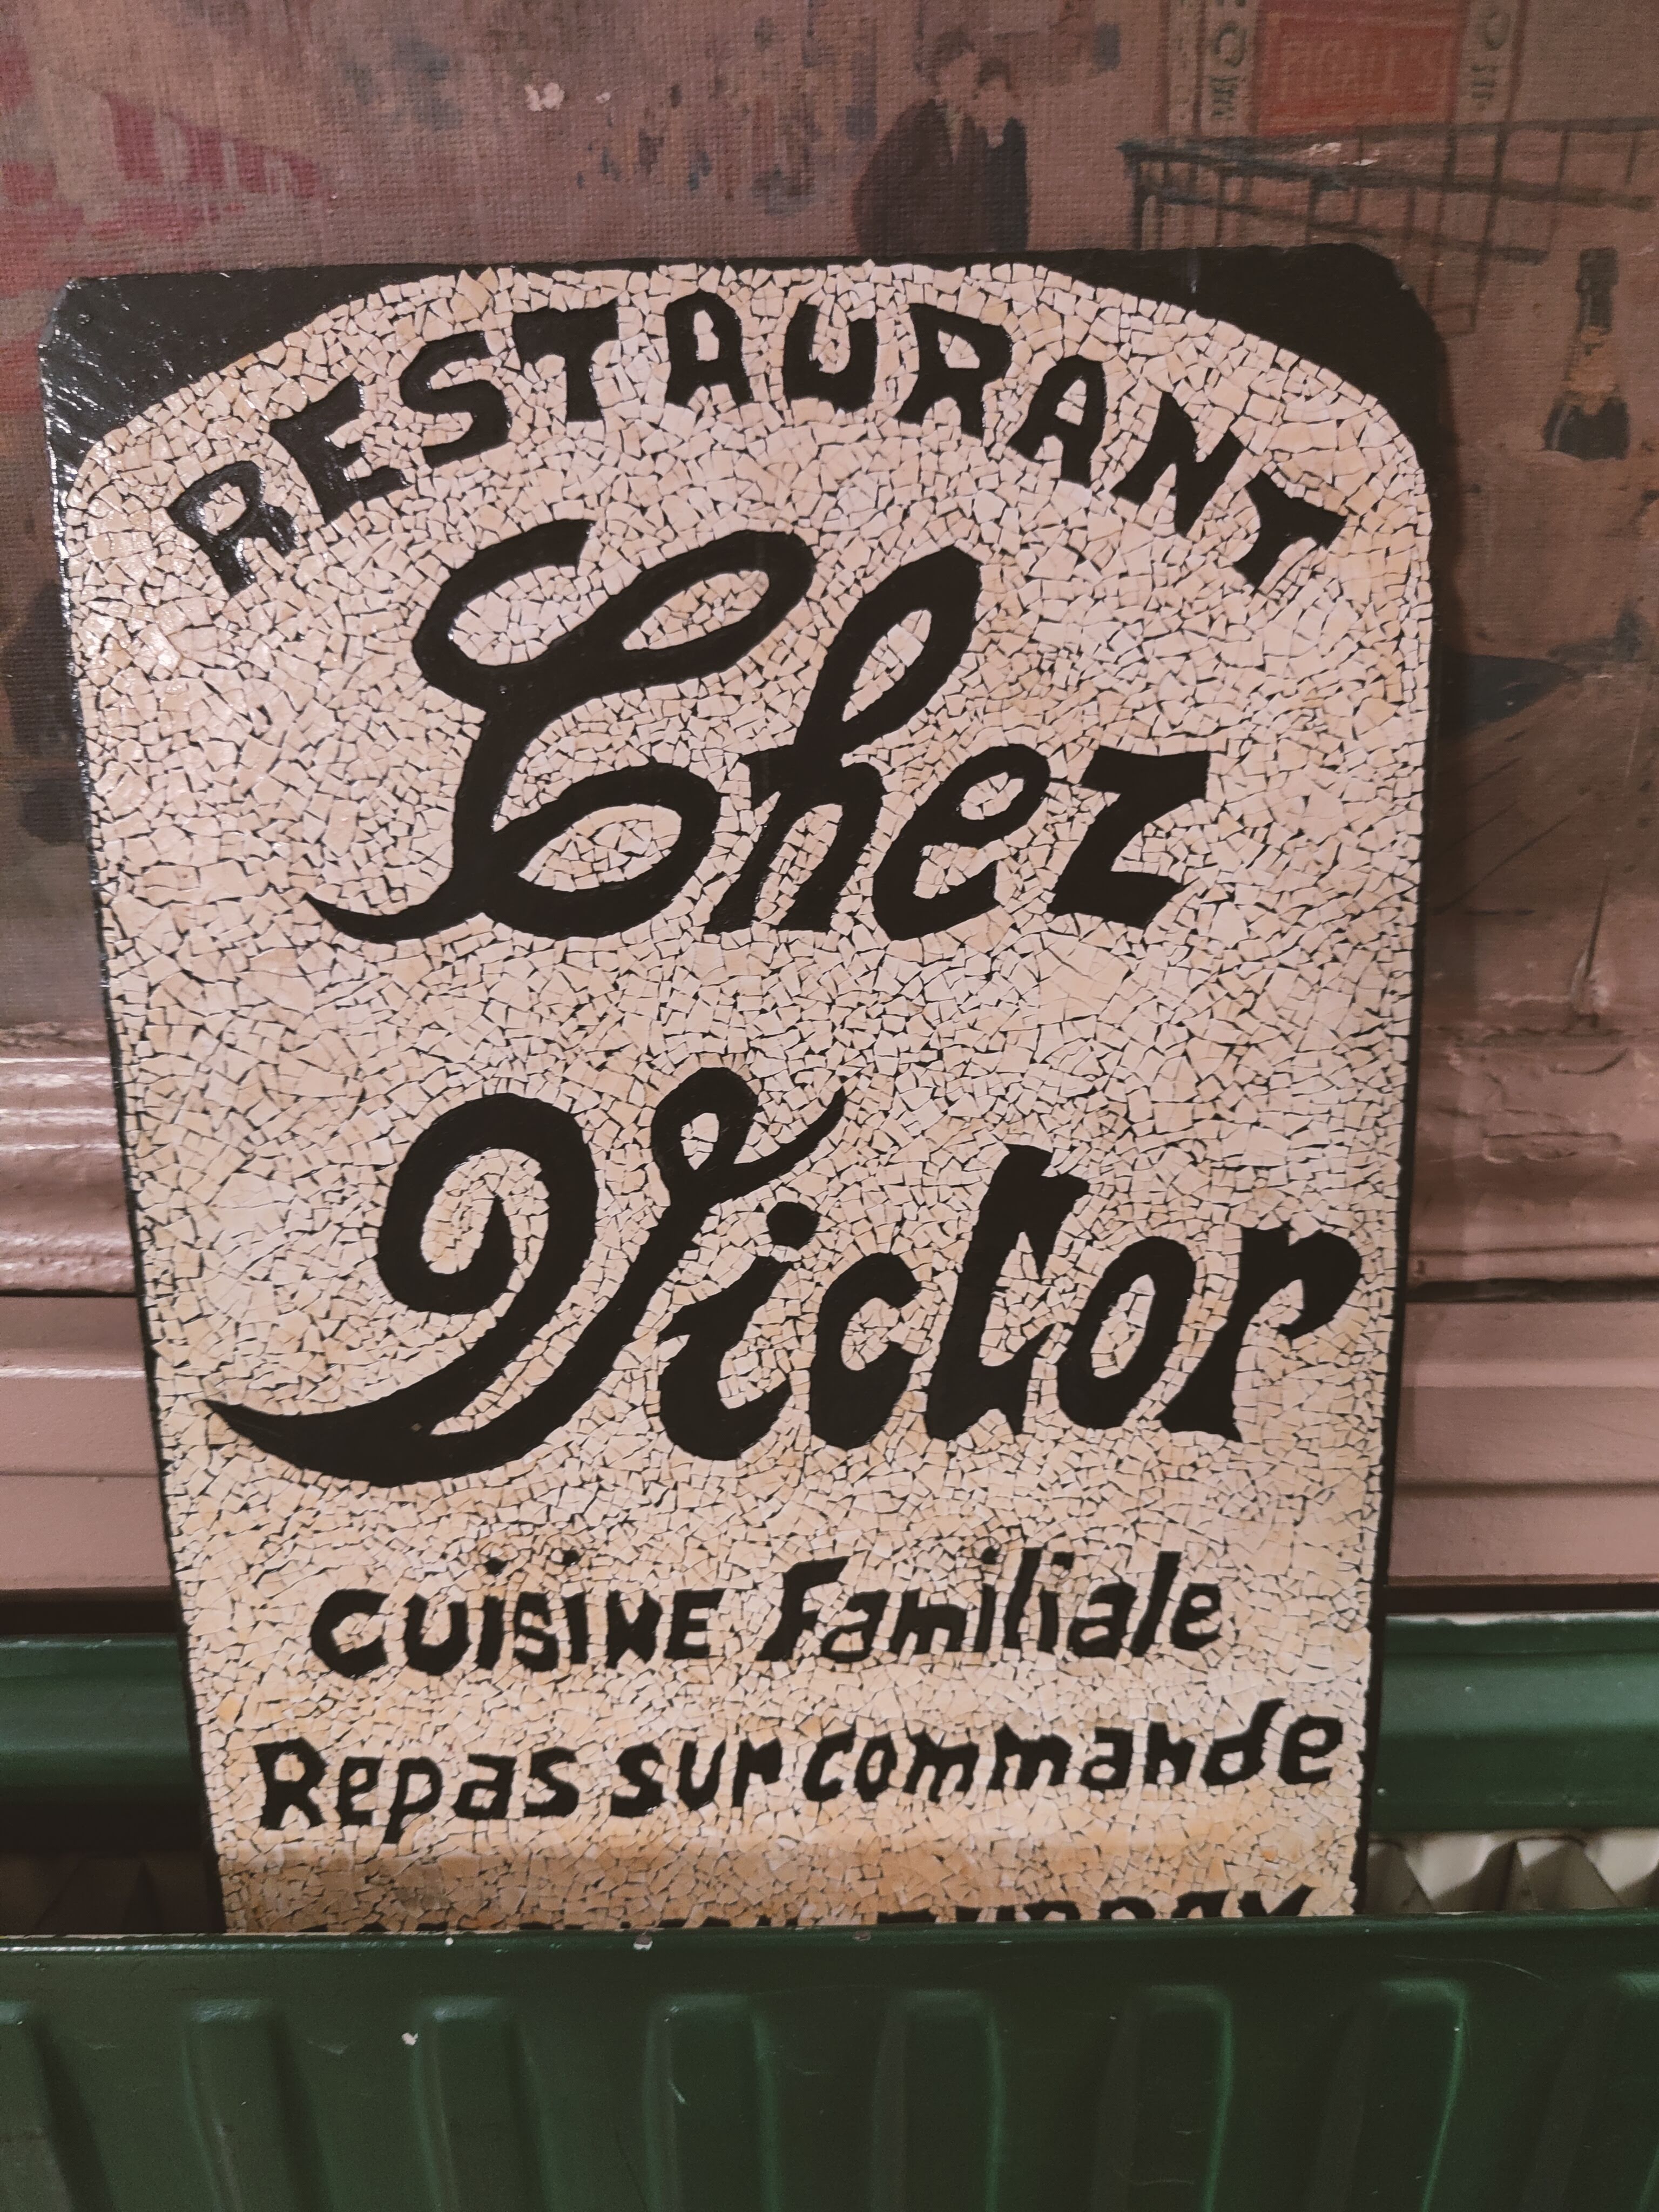 RESTAURANT
Chez
Victor
CUISINE Familiale
Repas sur commande